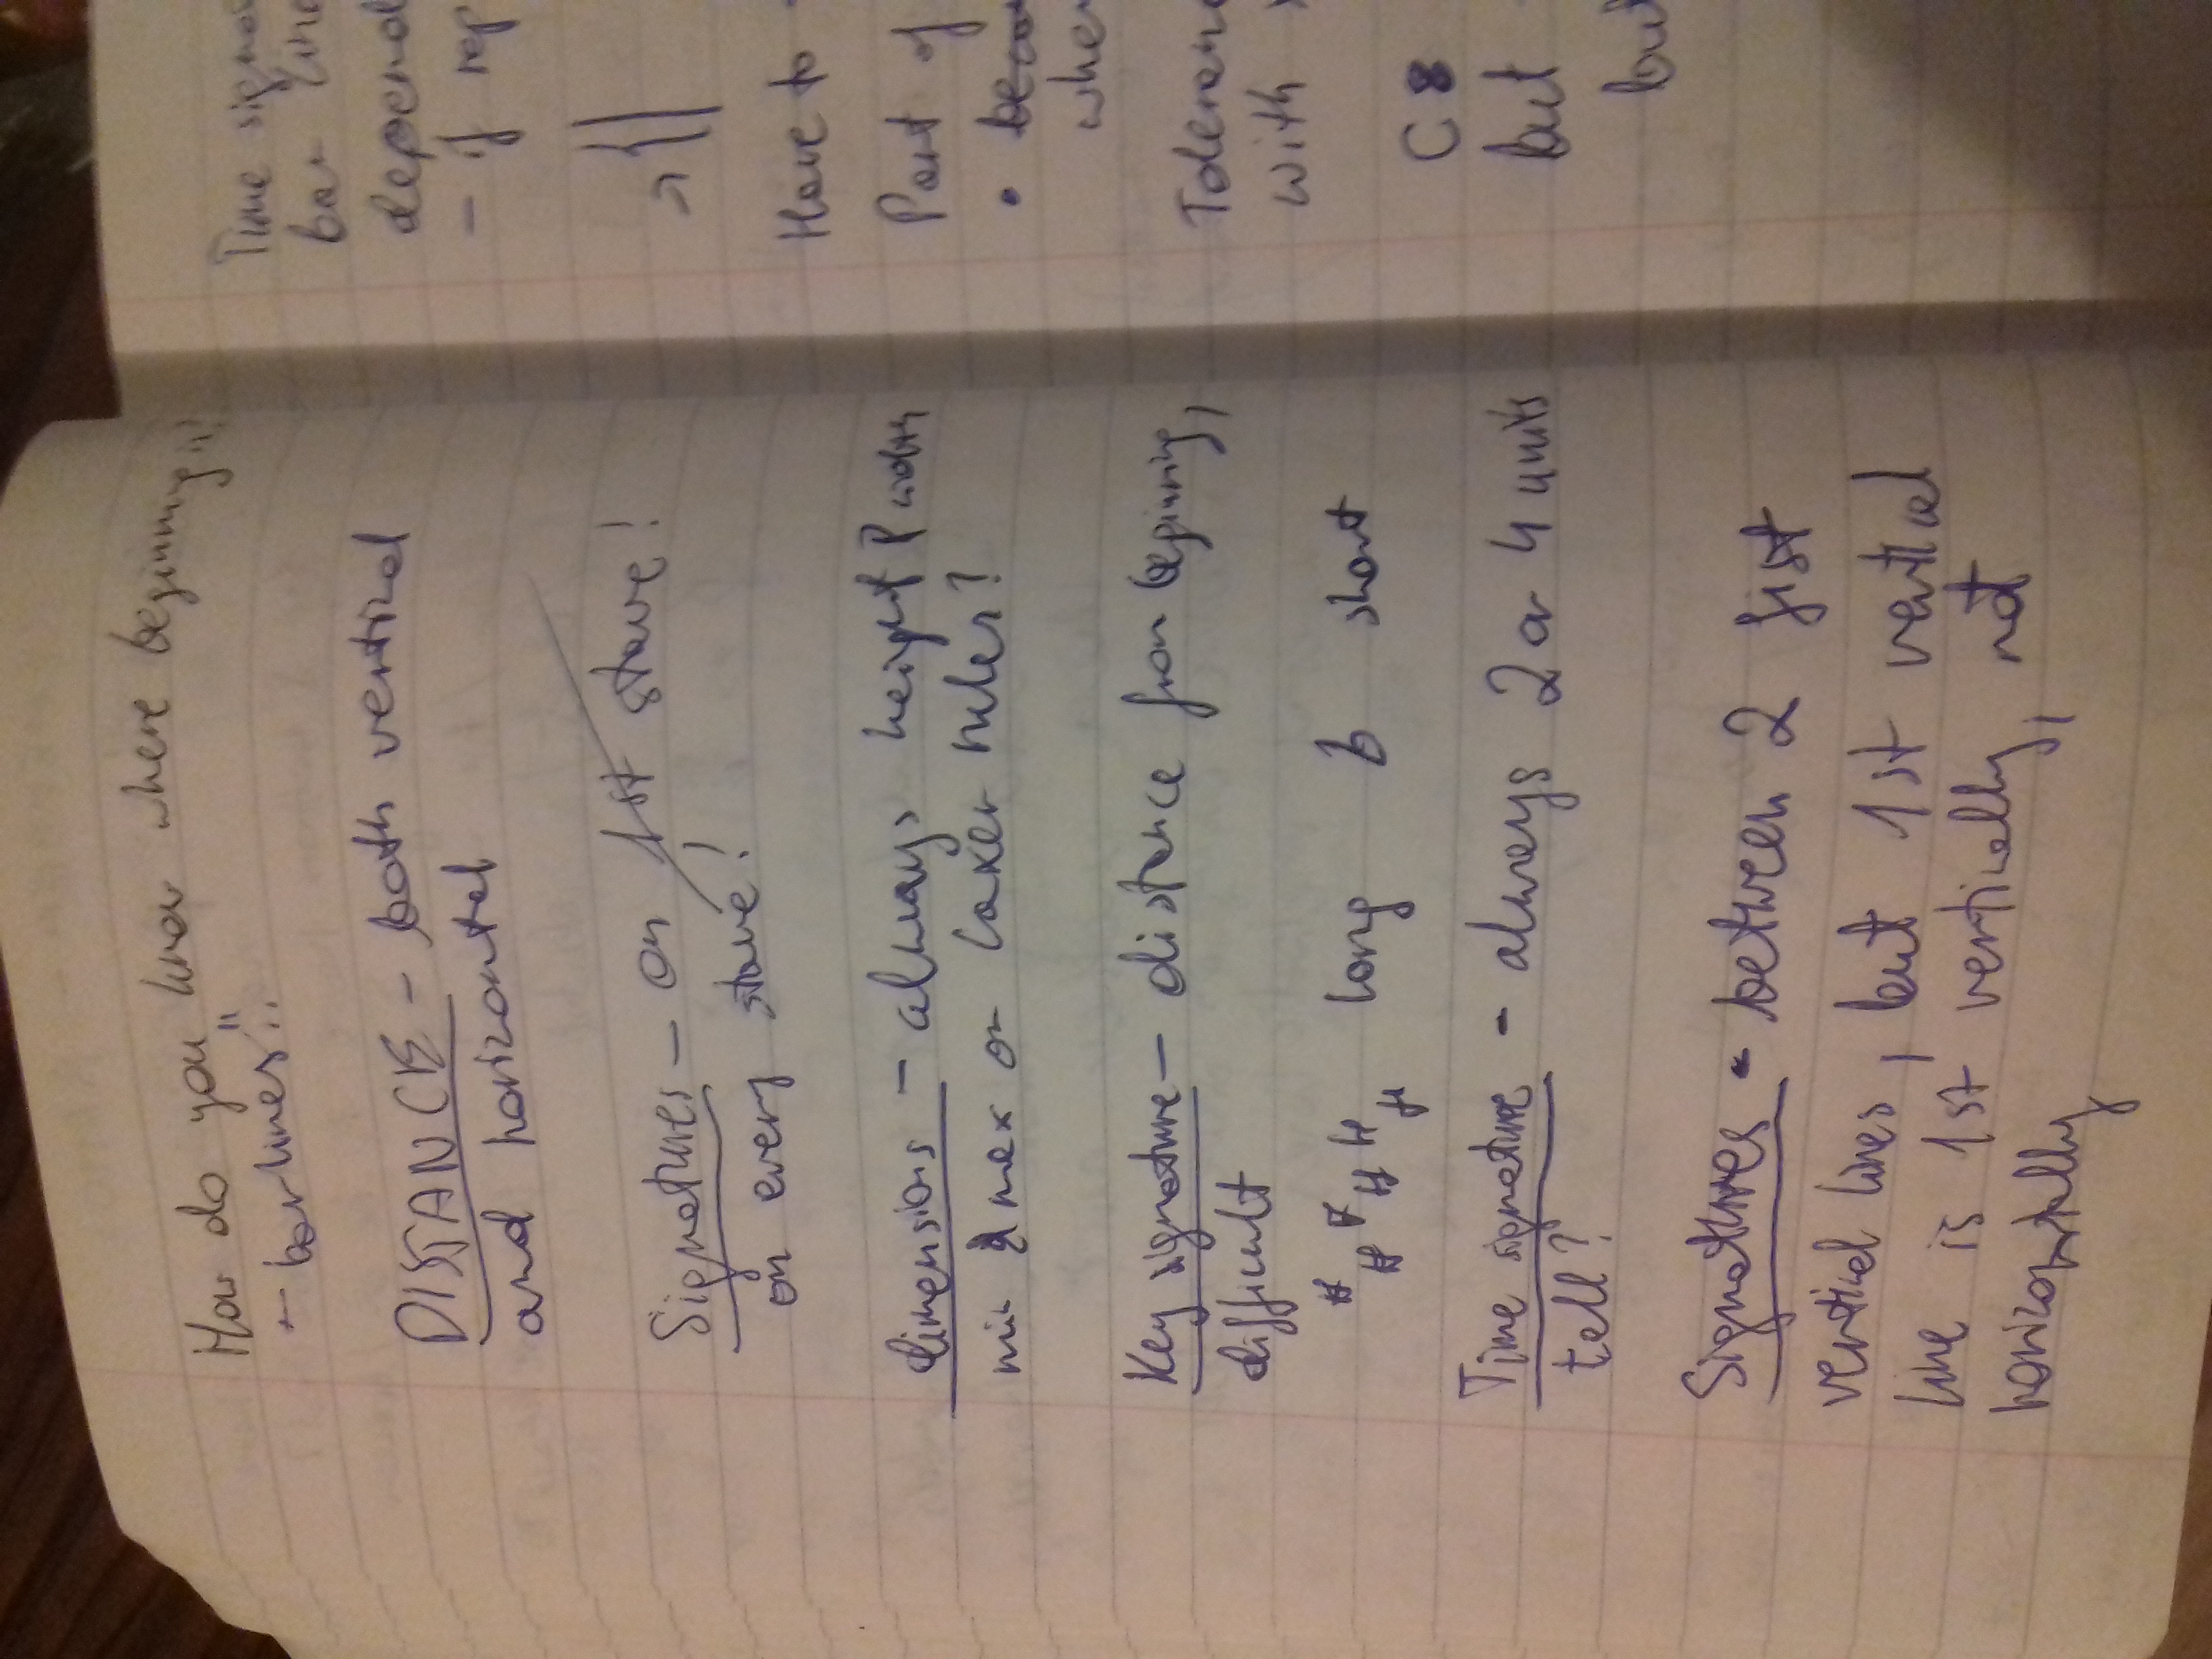 How do you know where beginning is?
- barlines"..
DISTANCE - both vertical
and horizontal
Signatures - on 1st stave!
on every stave!
dimensions - always height & width
min & max or laxer rules?
Key signature - distance from beginning,
difficult
# # # # # # long b short
Time signature - always 2 or 4 units
tall?
Signatures - between 2 fist
vertical lines, but 1st vertical
line is 1st vertically, not
horizontally
Time signa
bar line
depend
- if rep
→ ||
Have to
Part of
• beca
when
Toleran
with
C 8
but
but